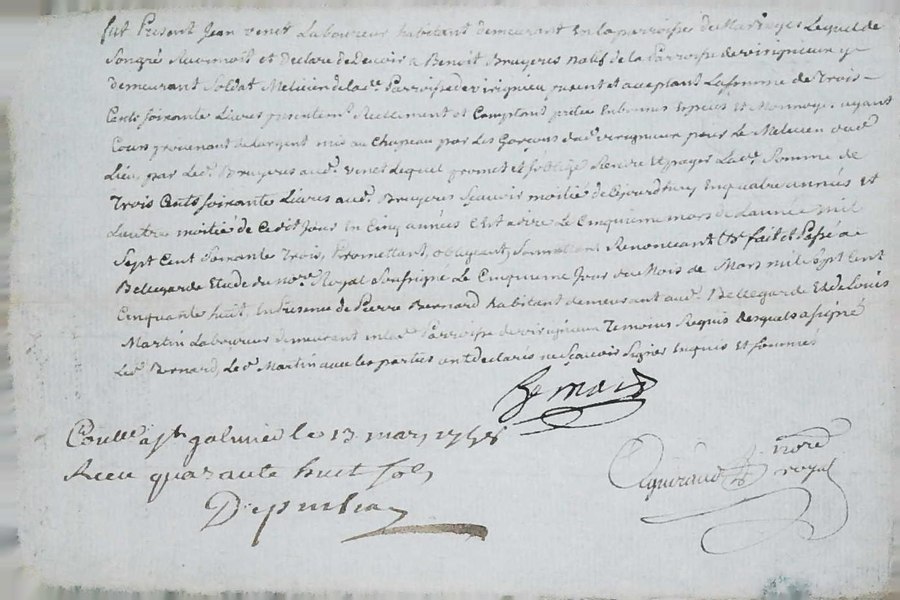 fut Present Jean venet Laboureur habitant demeurant en la parroisse de Maringes Lequel de
Songré Reconnoit et Declare de devoir a Benoit Bruyeres natif de la Parroisse de virigneux y
demeurant Soldat Milicien de lad.e Parroisse de virigneu present et acceptant La somme de Trois
Cents soixante Livres presentem.t Reellement et Comptant pretée En bonnes Especes et Monnoye ayant
Cours provenant de Largent mis au Chapeau par Les Garçons dud. virigneux pour Le Milicien dud.
Lieu par Led. Bruyeres aud. venet Lequel promet et soblige Rendre Et payer Lad.e Somme de
Trois Cents soixante Livres aud. Bruyeres Scavoir moitié de Cejourdhuy En quatre années et
Lautre moitié de Cedit Jour En Cinq années C'est adire Le Cinquieme mars de Lannée Mil
Sept Cent Soixante Trois, Promettant, obligeant, Soumettant Renonceant &c fait et Passé a
Bellegarde Etude du no.re Royal Soussigné Le Cinquieme Jour du Mois de Mars mil sept Cent
Cinquante huit, En Presence de Pierre Bernard habitant demeurant aud. Bellegarde Et de Louis
Martin Laboureur demeurant en lad. Parroisse de virigneux Temoins Requis Desquels a signé
Led. Bernard, Led. Martin avec les parties ont declarés ne Scavoir Signer Enquis et sommés
Coulle a st galmier le 13 mars 1758
Receu quarante huit sols
nore
royal